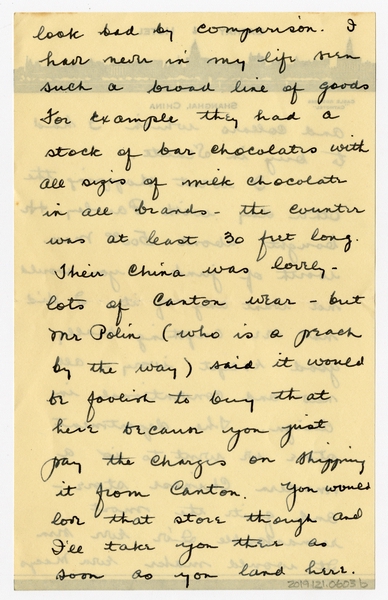 look bad by comparison. I
have never in my life seen
such a broad line of goods
For example they had a
stock of bar chocolates with
all sizes of milk chocolate
in all brands - the counter
was at least 30 feet long.
Their China was lovely -
lots of Canton wear - but
Mr Polin (who is a peach
by the way) said it would
be foolish to buy that
here because you just
pay the charges on shipping
it from Canton. You would
love that store though and
I'll take you there as
soon as you land here.
2019.121.0603 b